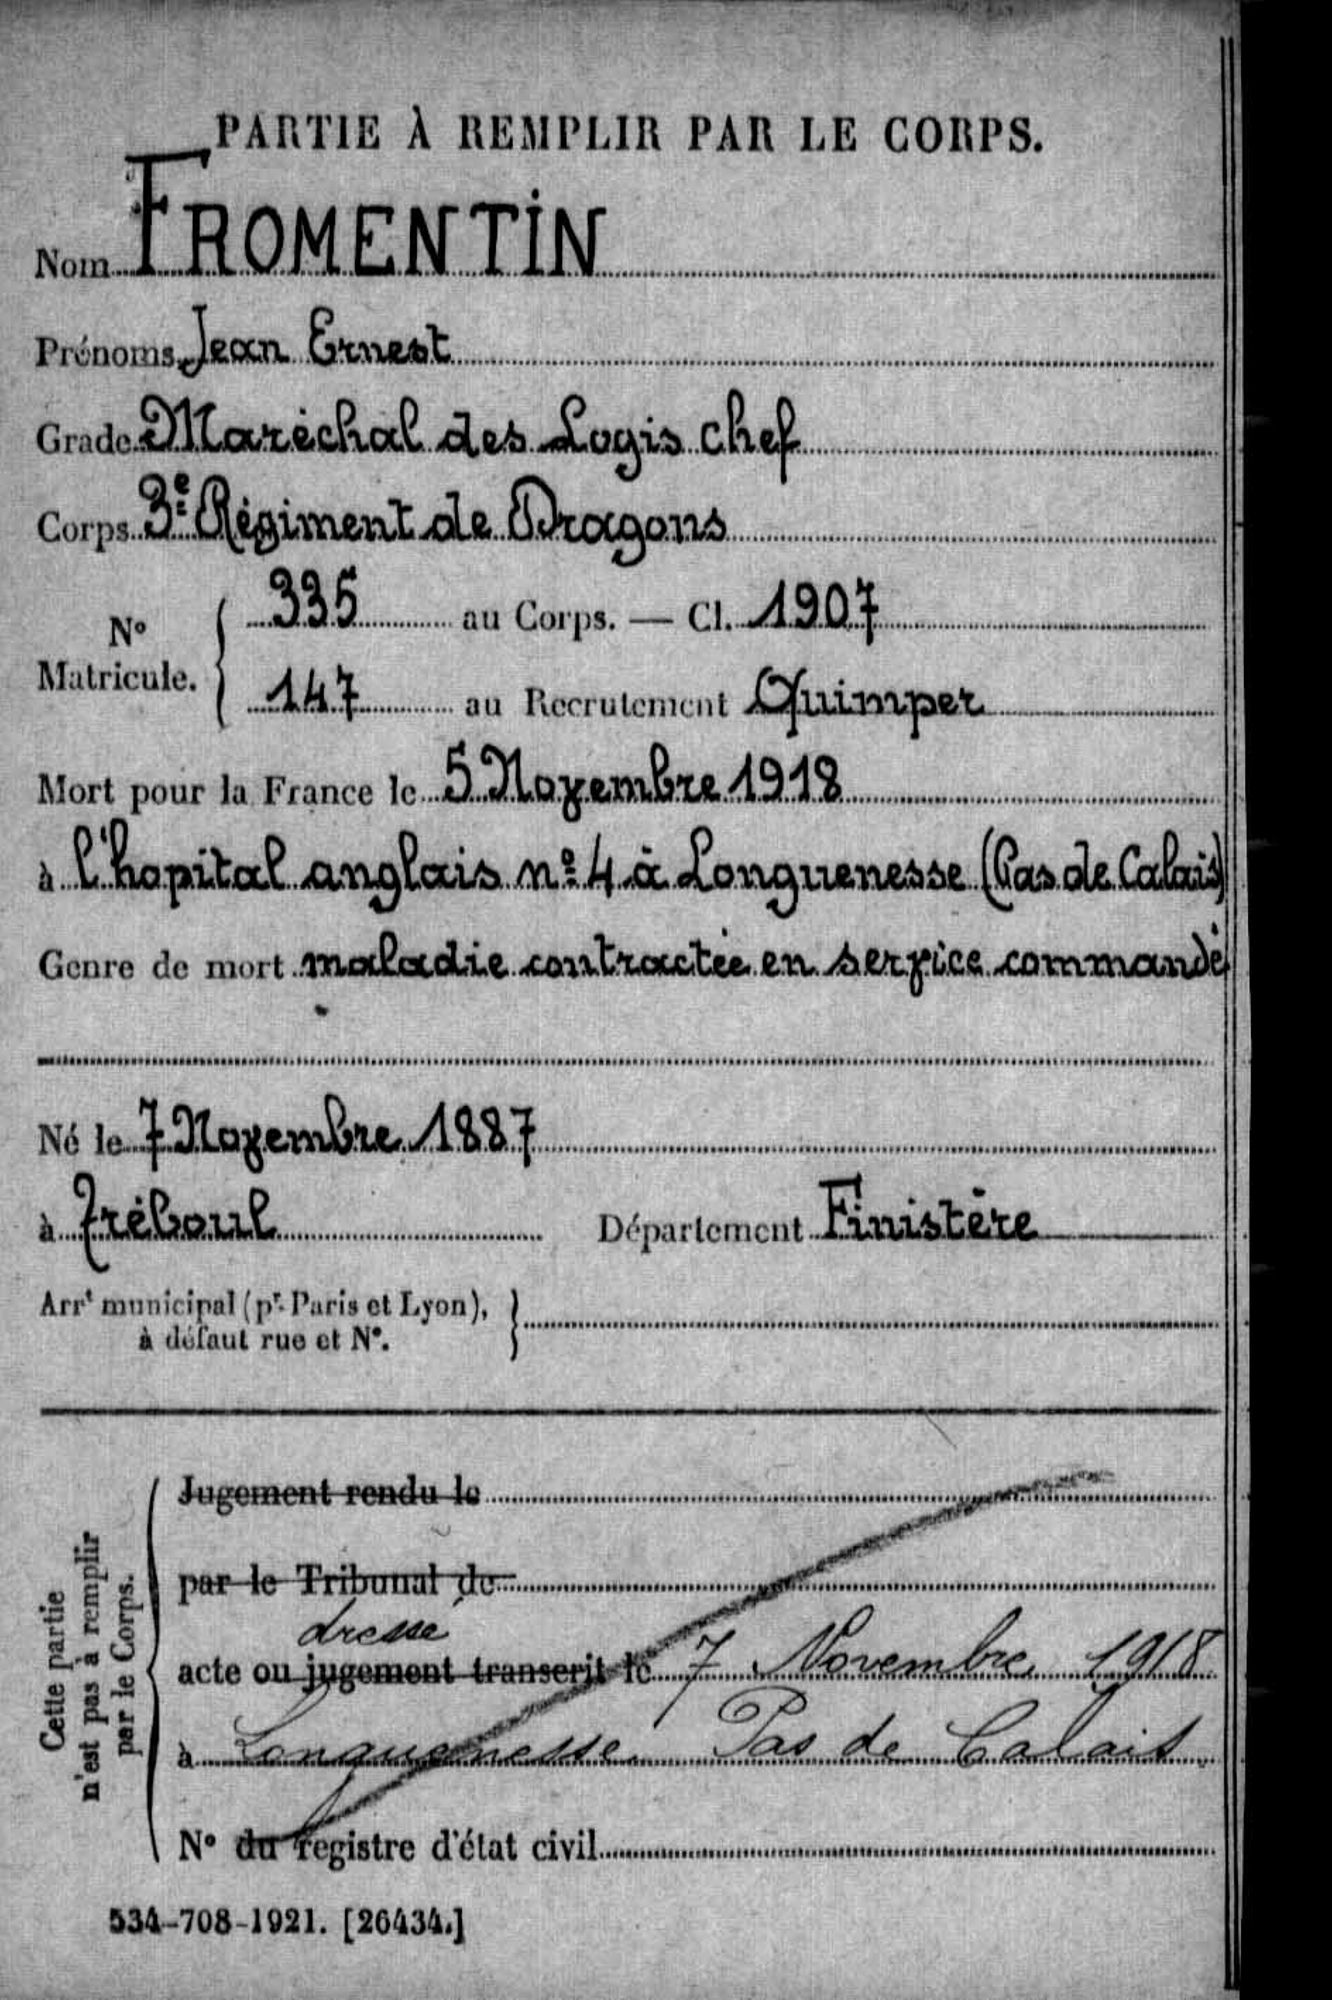 PARTIE À REMPLIR PAR LE CORPS.
Nom FROMENTIN
Prénoms Jean Ernest
Grade Maréchal des Logis chef
Corps 3e Régiment de Dragons
No Matricule. { 335 au Corps. — Cl. 1907
147 au Recrutement Quimper
Mort pour la France le 5 Novembre 1918
à l'hopital anglais no 4 à Longuenesse (Pas de Calais)
Genre de mort maladie contractée en service commandé
Né le 7 Novembre 1887
à Tréboul Département Finistère
Arrt municipal (pr Paris et Lyon),
à défaut rue et No.
Cette partie
n'est pas à remplir
par le Corps.
Jugement rendu le
par le Tribunal de
dressé
acte ou jugement transcrit le 7 Novembre 1918
à Longuenesse Pas de Calais
No du registre d'état civil
534-708-1921. [26434.]